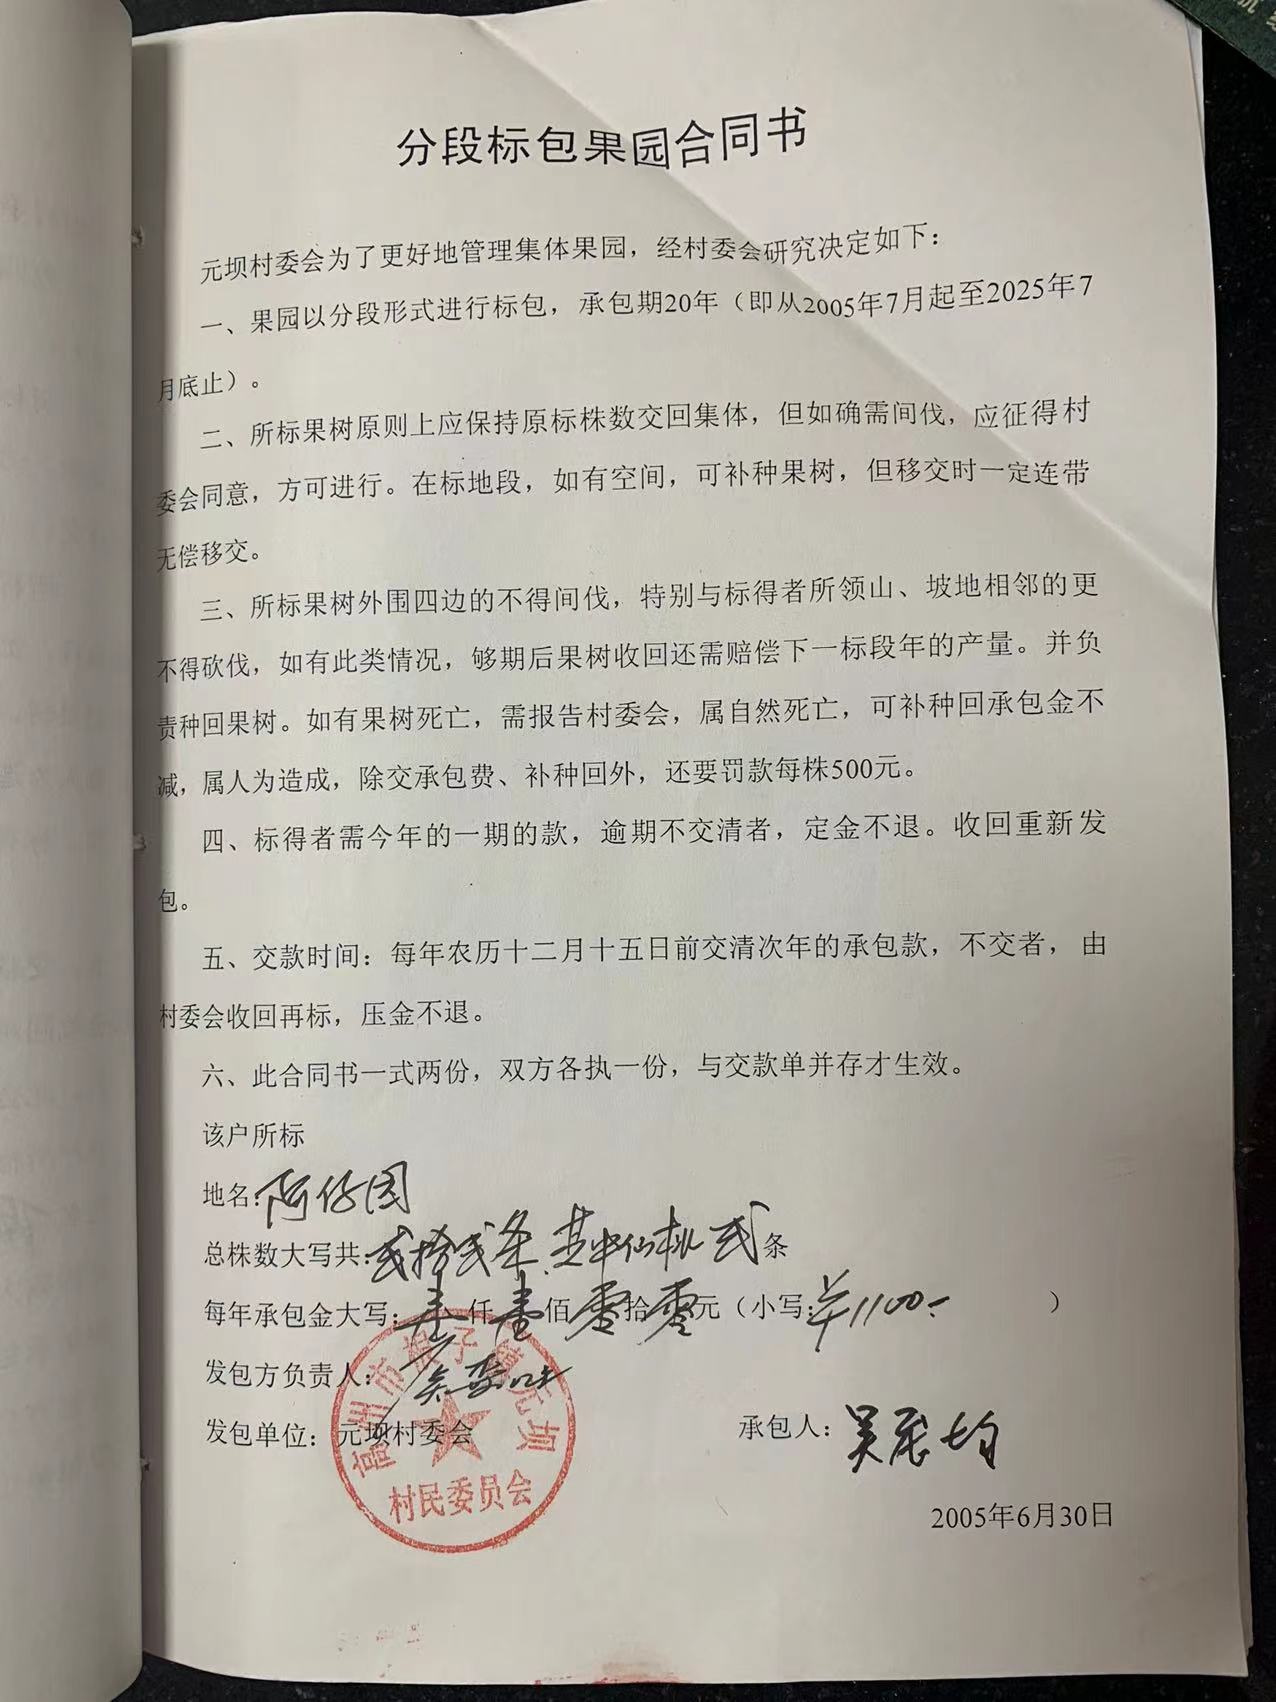 分段标包果园合同书
元坝村委会为了更好地管理集体果园，经村委会研究决定如下：
一、果园以分段形式进行标包，承包期20年（即从2005年7月起至2025年7
月底止）。
二、所标果树原则上应保持原标株数交回集体，但如确需间伐，应征得村
委会同意，方可进行。在标地段，如有空间，可补种果树，但移交时一定连带
无偿移交。
三、所标果树外围四边的不得间伐，特别与标得者所领山、坡地相邻的更
不得砍伐，如有此类情况，够期后果树收回还需赔偿下一标段年的产量。并负
责种回果树。如有果树死亡，需报告村委会，属自然死亡，可补种回承包金不
减，属人为造成，除交承包费、补种回外，还要罚款每株500元。
四、标得者需今年的一期的款，逾期不交清者，定金不退。收回重新发
包。
五、交款时间：每年农历十二月十五日前交清次年的承包款，不交者，由
村委会收回再标，压金不退。
六、此合同书一式两份，双方各执一份，与交款单并存才生效。
该户所标
地名：阿仔园
总株数大写共：贰拾贰条 其中仙桃贰条
每年承包金大写：壹仟壹佰零拾零元（小写：¥1100.-）
发包方负责人：
发包单位：元坝村委会 承包人：吴
2005年6月30日
高州市根子镇元坝
村民委员会